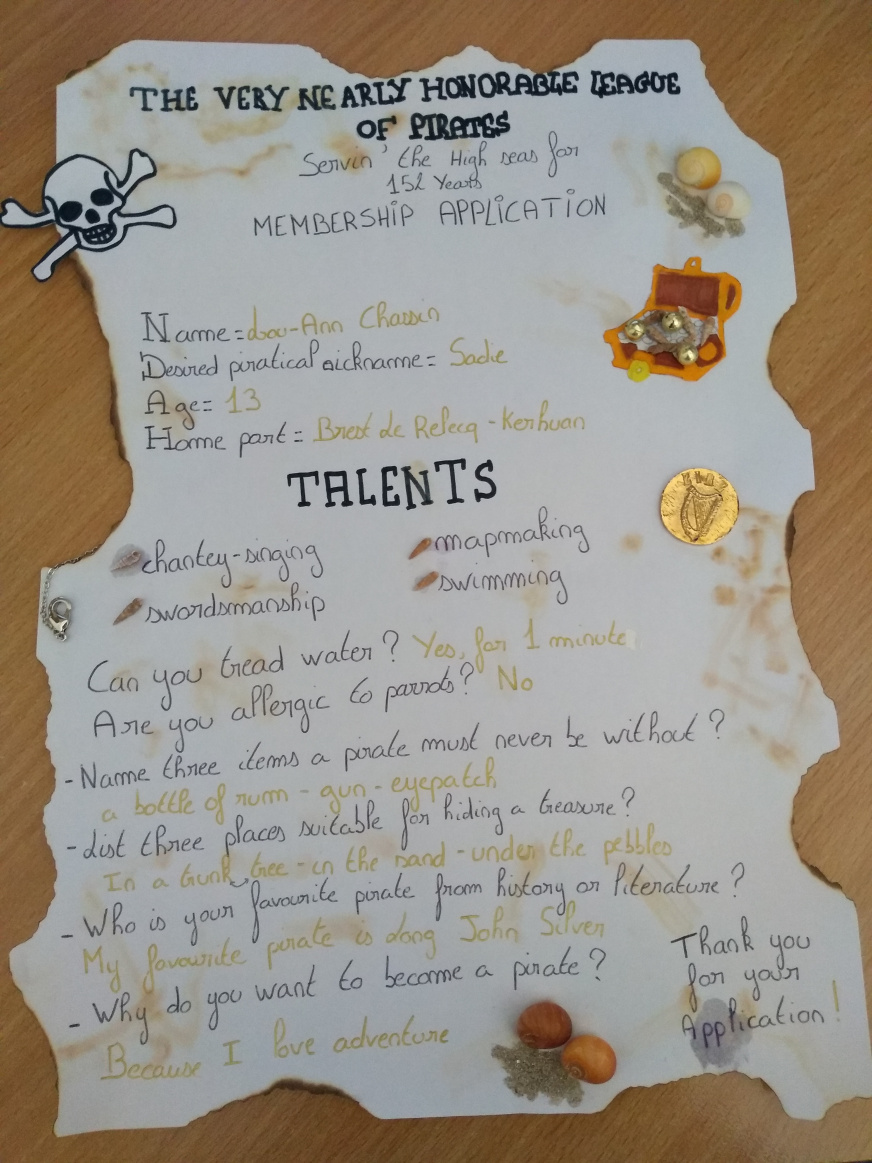 THE VERY NEARLY HONORABLE LEAGUE
OF PIRATES
Servin' the High seas for
152 Years
MEMBERSHIP APPLICATION
Name = Lou-Ann Chassin
Desired piratical nickname = Sadie
Age = 13
Home part = Brest de Relecq - Kerhuan
TALENTS
chantey-singing
mapmaking
swordsmanship
swimming
Can you tread water? Yes, for 1 minute
Are you allergic to parrots? No
- Name three items a pirate must never be without?
a bottle of rum - gun - eyepatch
- List three places suitable for hiding a treasure?
In a trunk tree - in the sand - under the pebbles
- Who is your favourite pirate from history or literature?
My favourite pirate is Long John Silver
- Why do you want to become a pirate?
Because I love adventure
Thank you
for your
Application!